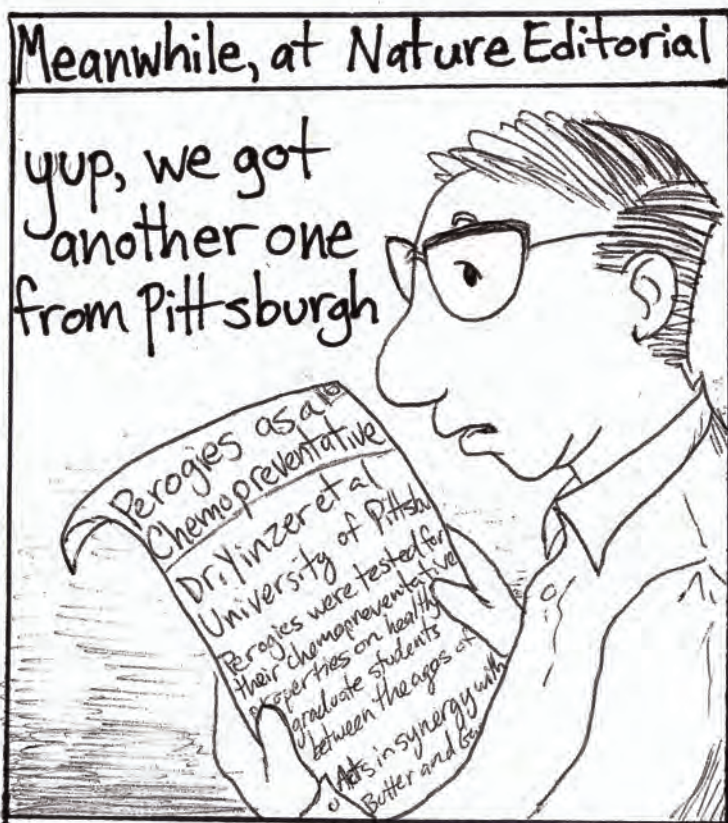 Meanwhile, at Nature Editorial
yup, we got
another one
from Pittsburgh
Perogies as a
Chemopreventative
Dr. Yinzer et al
University of Pittsbu
Perogies were tested for
their chemopreventative
properties on healthy
graduate students
between the ages of
Acts in synergy with
Butter and